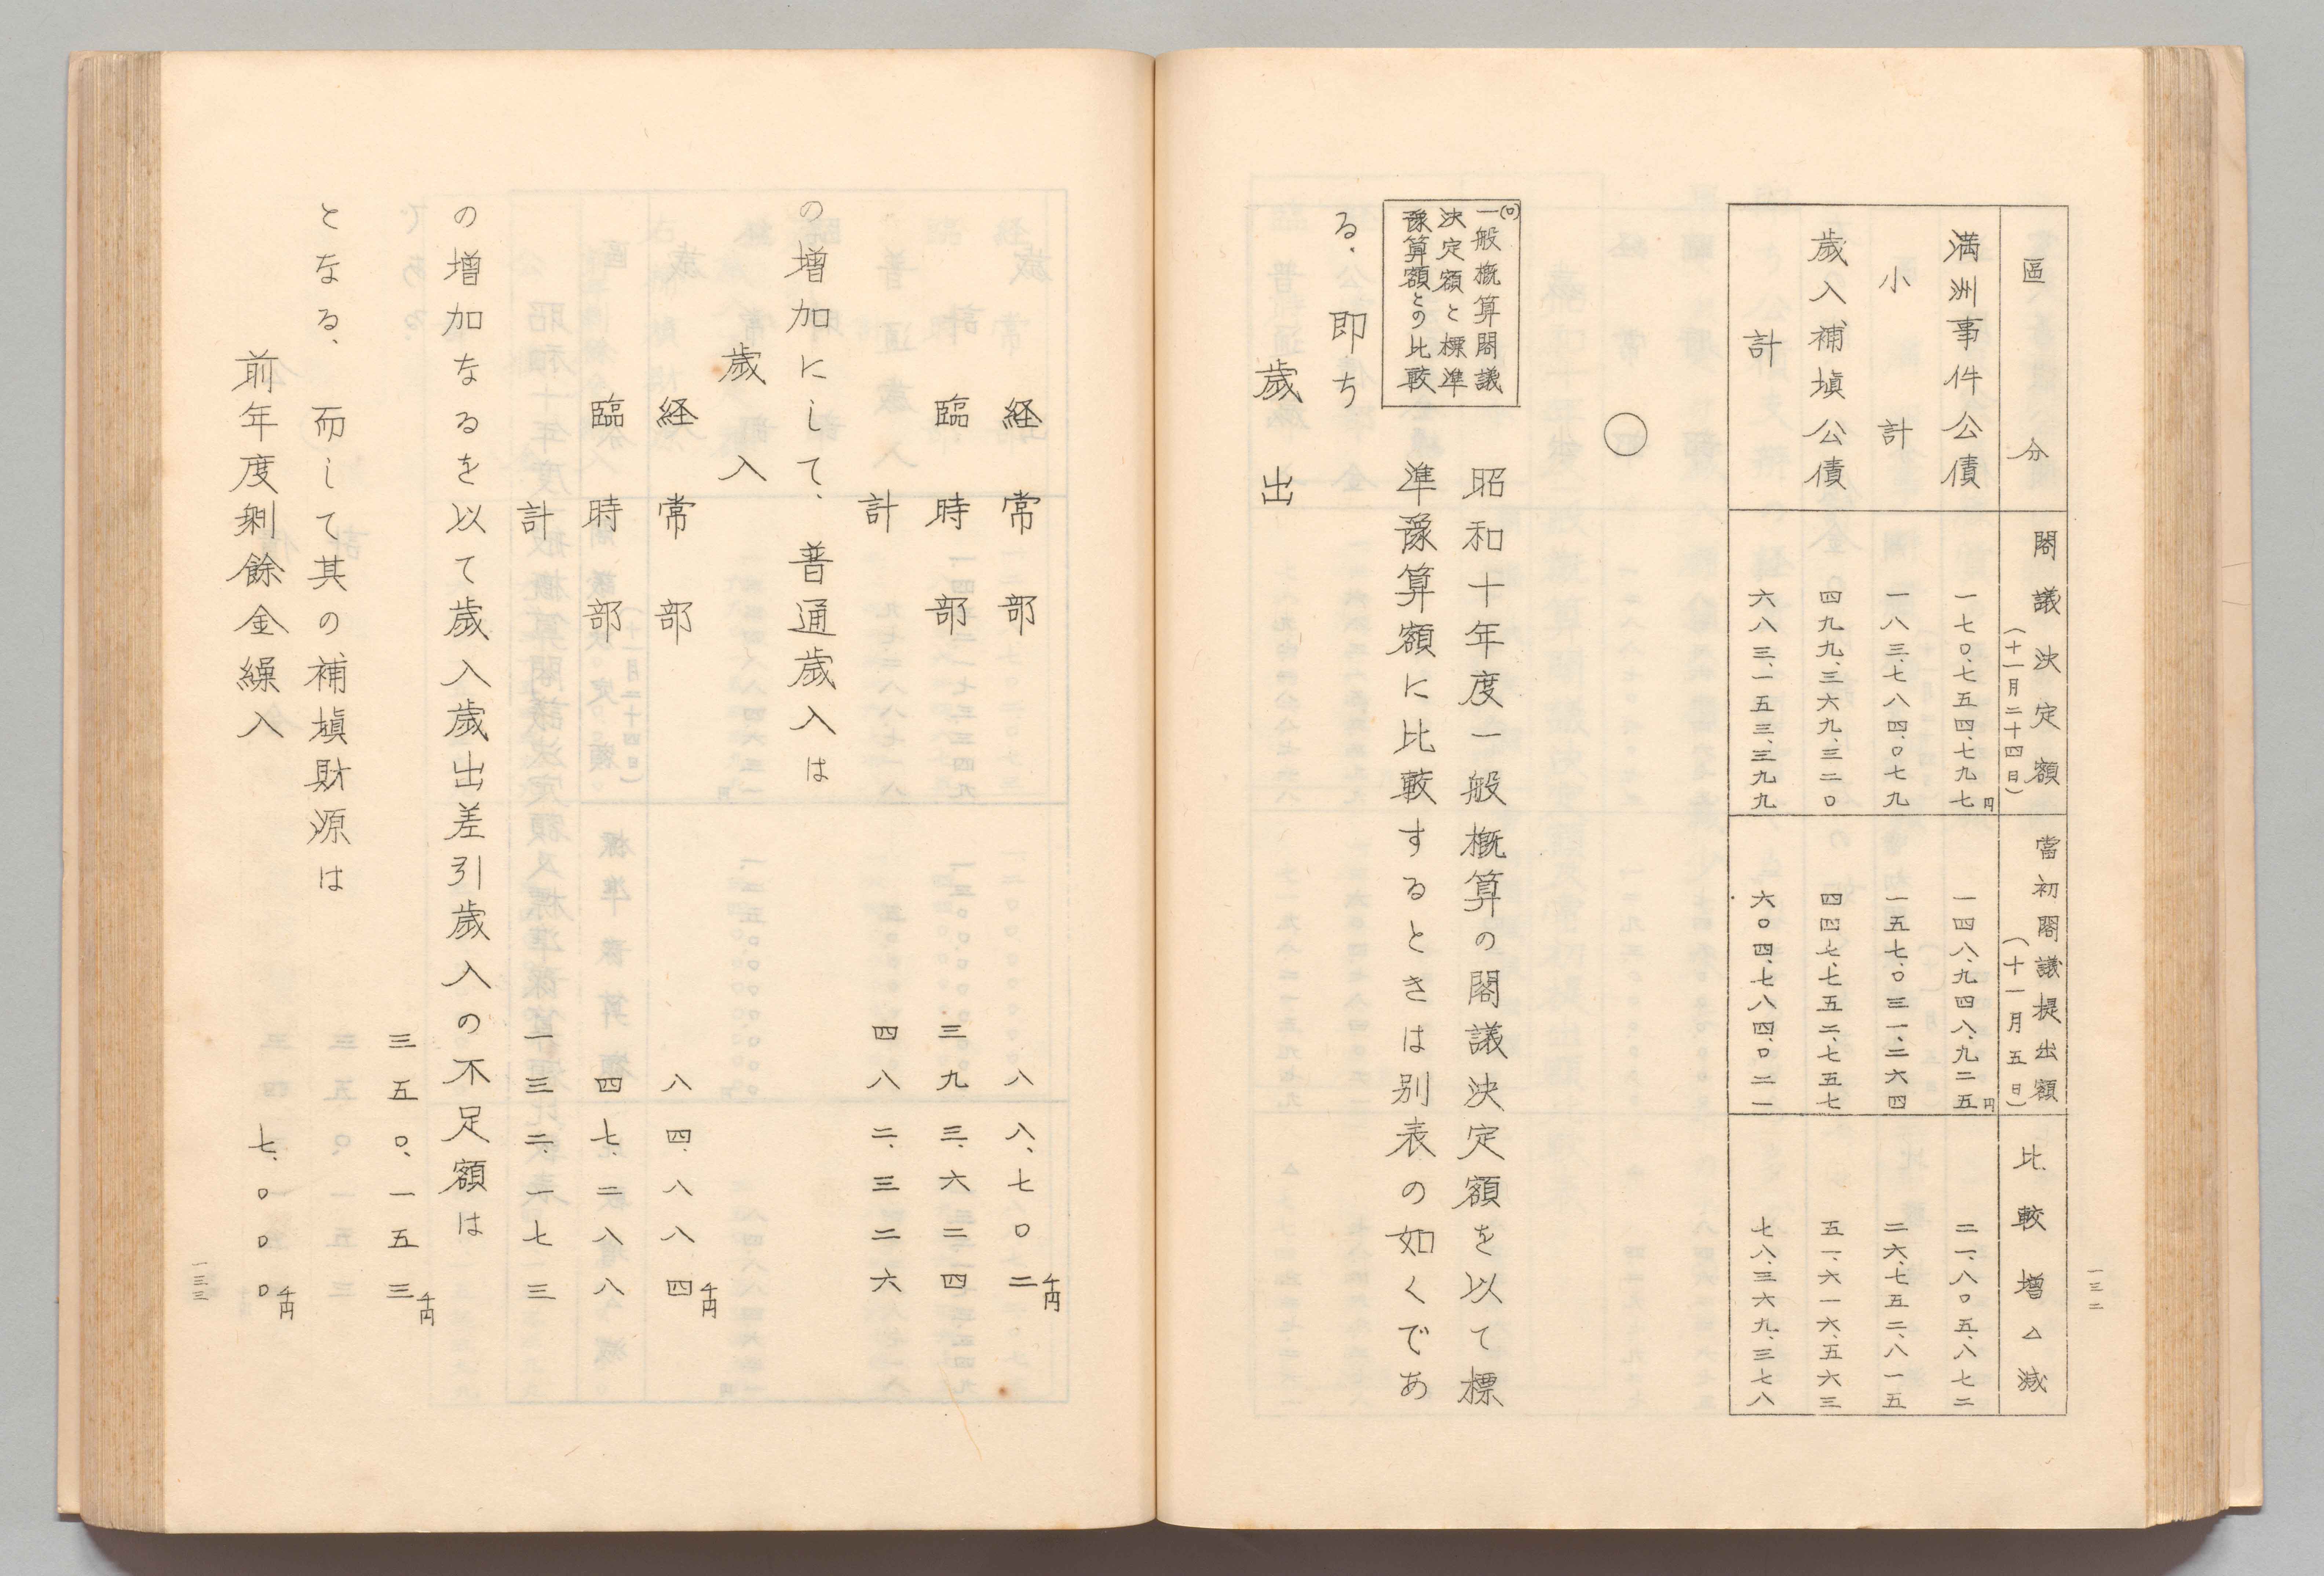 一三二
區分 閣議決定額(十一月二十四日) 當初閣議提出額(十一月五日) 比較増△減
満洲事件公債 一七〇、七五四、七九七円 一四八、九四八、九二五円 二一、八〇五、八七二
小計 一八三、七八四、〇七九 一五七、〇三一、二六四 二六、七五二、八一五
歳入補塡公債 四九九、三六九、三二〇 四四七、七五二、七五七 五一、六一六、五六三
計 六八三、一五三、三九九 六〇四、七八四、〇二一 七八、三六九、三七八
○
(ロ)一般概算閣議
決定額と標準
豫算額との比較
昭和十年度一般概算の閣議決定額を以て標
準豫算額に比較するときは別表の如くであ
る.即ち
歳出
経常部 八八、七〇二千円
臨時部 三九三、六二四
計 四八二、三二六
の増加にして、普通歳入は
歳入
経常部 八四、八八四千円
臨時部 四七、二八八
計 一三二、一七三
の増加なるを以て歳入歳出差引歳入の不足額は
三五〇、一五三千円
となる、而して其の補塡財源は
前年度剰餘金繰入 七、〇〇〇千円
一三三